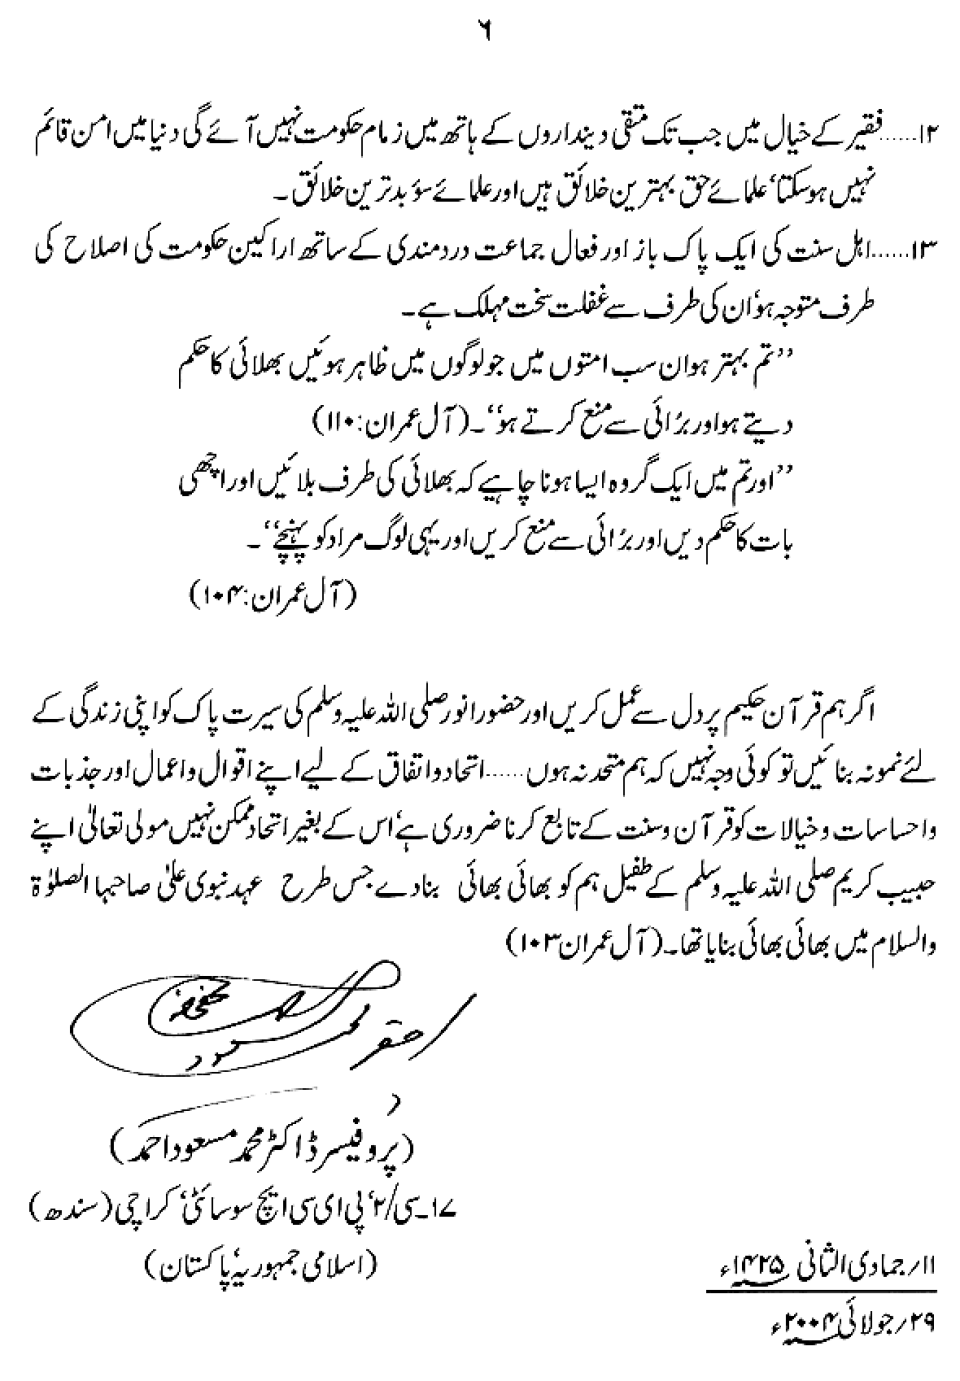 ۶
۱۲……فقیر کے خیال میں جب تک متقی دینداروں کے ہاتھ میں زمام حکومت نہیں آئے گی دنیا میں امن قائم
نہیں ہوسکتا‘ علمائے حق بہترین خلائق ہیں اور علمائے سؤ بدترین خلائق ۔
۱۳……اہل سنت کی ایک پاک باز اور فعال جماعت دردمندی کے ساتھ اراکین حکومت کی اصلاح کی
طرف متوجہ ہو‘ ان کی طرف سے غفلت سخت مہلک ہے ۔
’’تم بہتر ہو ان سب امتوں میں جو لوگوں میں ظاہر ہوئیں بھلائی کا حکم
دیتے ہو اور برُائی سے منع کرتے ہو‘‘۔ (آل عمران: ۱۱۰)
’’اور تم میں ایک گروہ ایسا ہونا چاہیے کہ بھلائی کی طرف بلائیں اور اچھی
بات کا حکم دیں اور برُائی سے منع کریں اور یہی لوگ مراد کو پہنچے‘‘۔
(آل عمران: ۱۰۴)
اگر ہم قرآن حکیم پر دل سے عمل کریں اور حضور انور صلی اللہ علیہ وسلم کی سیرت پاک کو اپنی زندگی کے
لئے نمونہ بنائیں تو کوئی وجہ نہیں کہ ہم متحد نہ ہوں……اتحاد و اتفاق کے لیے اپنے اقوال و اعمال اور جذبات
و احساسات و خیالات کو قرآن و سنت کے تابع کرنا ضروری ہے‘ اس کے بغیر اتحاد ممکن نہیں مولی تعالیٰ اپنے
حبیب کریم صلی اللہ علیہ وسلم کے طفیل ہم کو بھائی بھائی بنادے جس طرح عہد نبوی علیٰ صاحبہا الصلوٰۃ
والسلام میں بھائی بھائی بنایا تھا۔ (آل عمران ۱۰۳)
احقر محمد مسعود
(پروفیسر ڈاکٹر محمد مسعود احمد)
۱۷۔سی/۲‘ پی ای سی ایچ سوسائٹی‘ کراچی (سندھ)
(اسلامی جمہوریہٴ پاکستان)
۱۱/جمادی الثانی ۱۴۲۵ء
۲۹/جولائی ۲۰۰۴ء